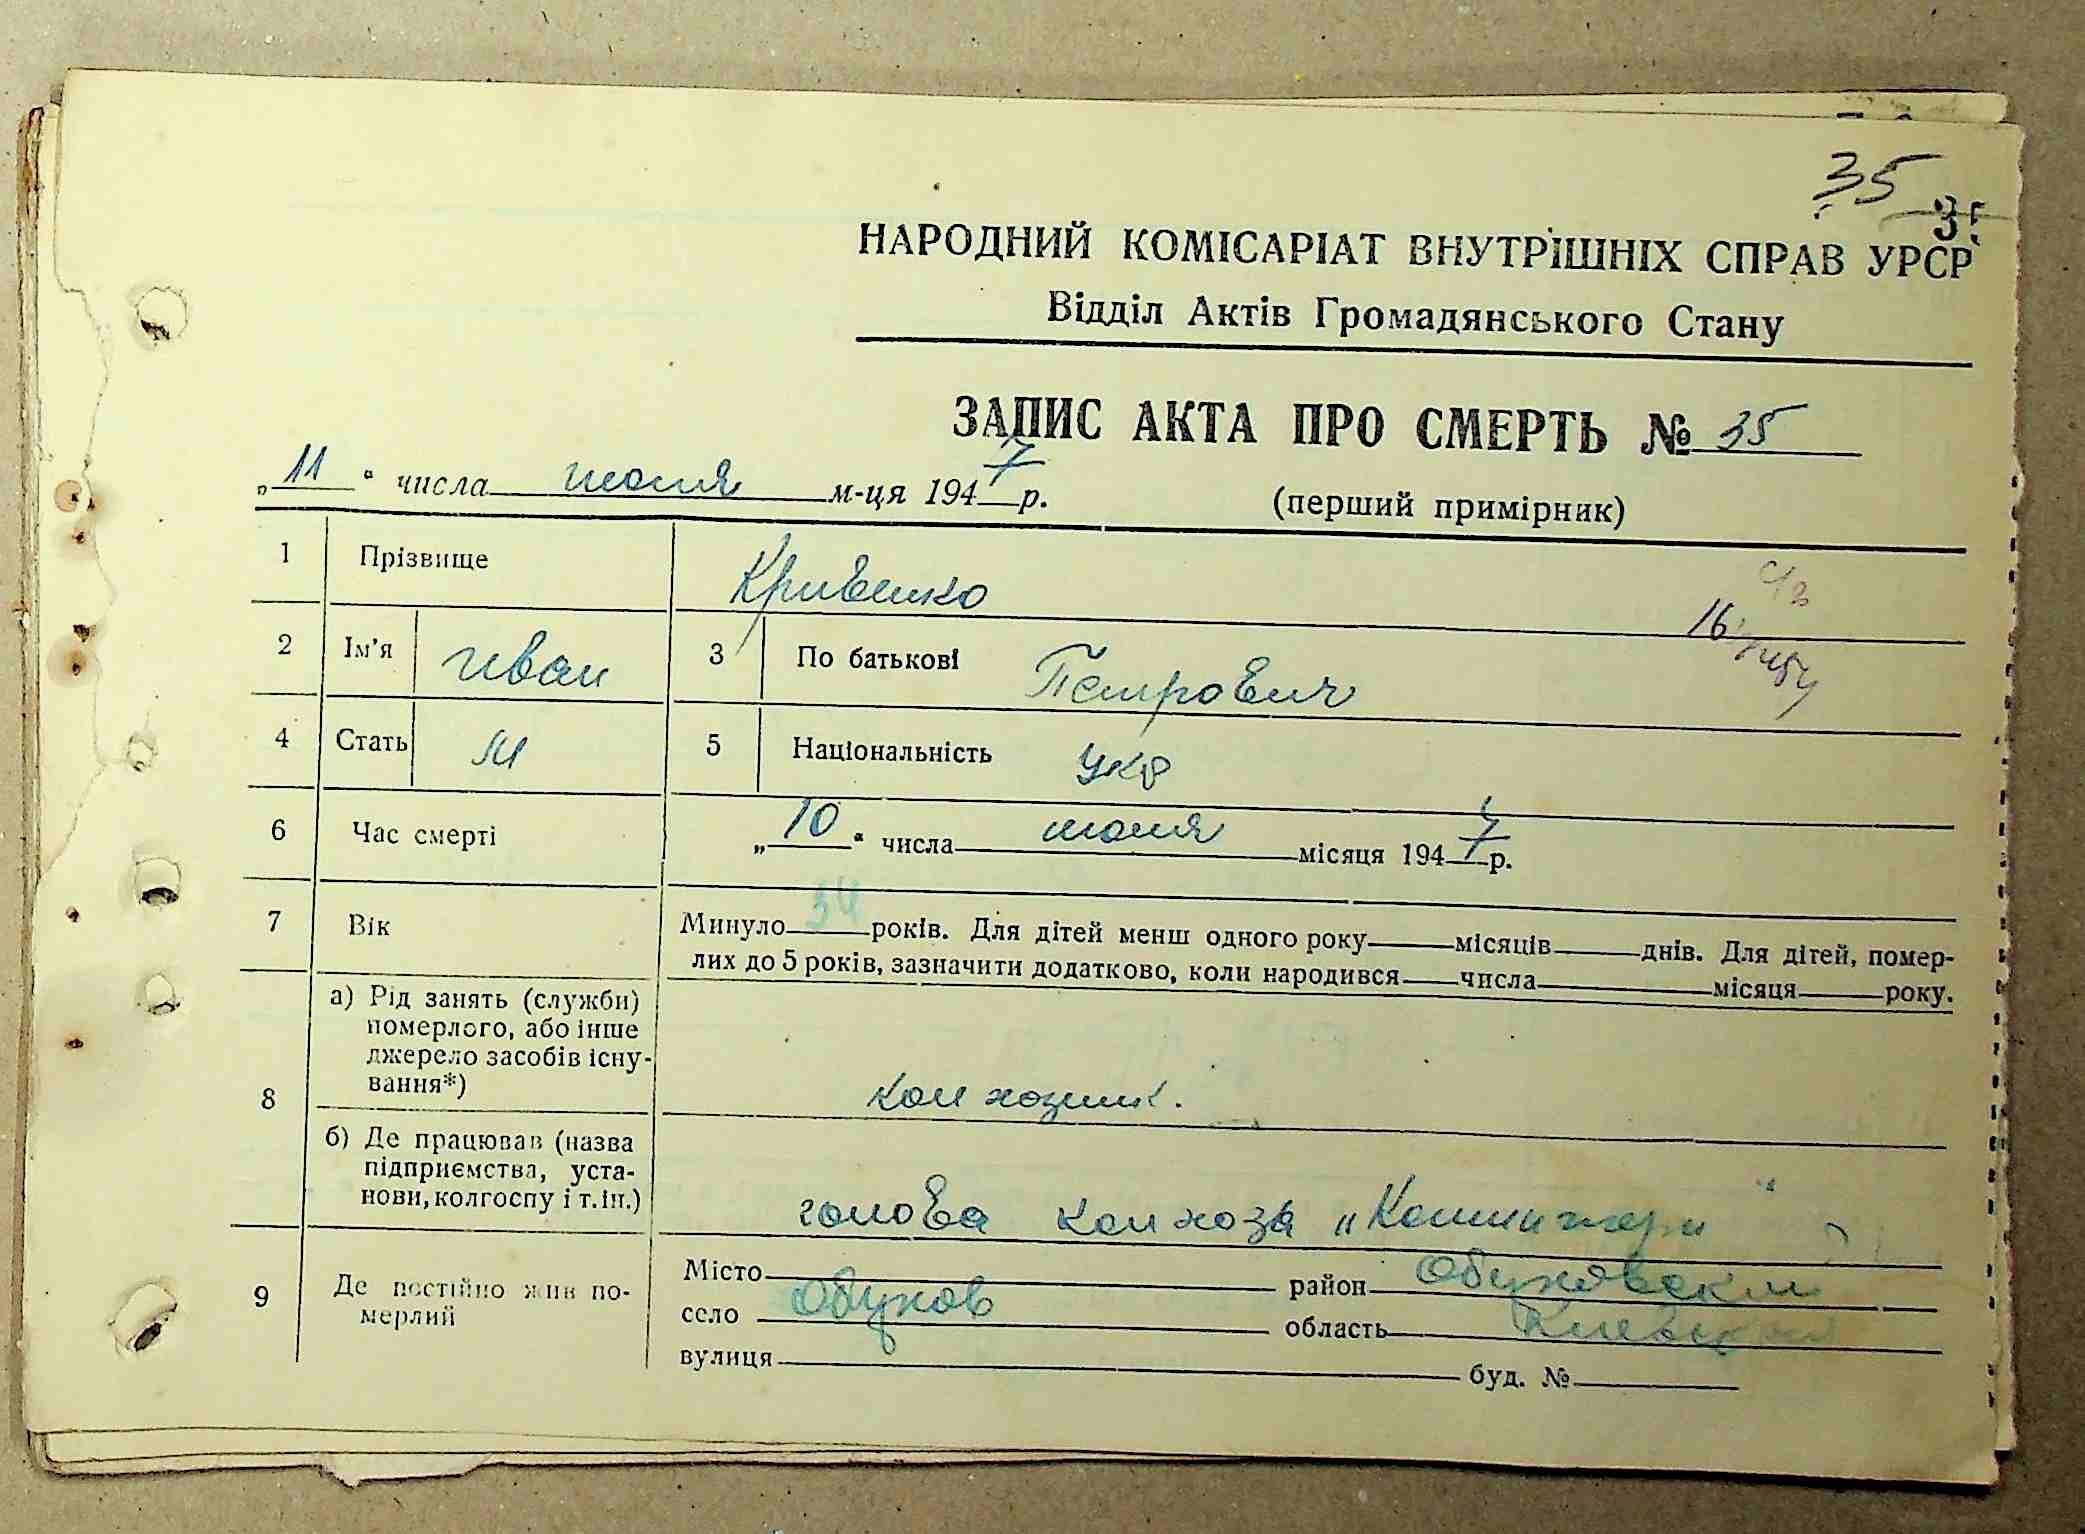 35
НАРОДНИЙ КОМІСАРІАТ ВНУТРІШНІХ СПРАВ УРСР
Відділ Актів Громадянського Стану
ЗАПИС АКТА ПРО СМЕРТЬ № 35
„11“ числа июня м-ця 1947 р.
(перший примірник)
1 Прізвище Кривенко
2 Ім'я Иван 3 По батькові Петрович
16
4 Стать М 5 Національність укр
6 Час смерті „10“ числа июня місяця 1947 р.
7 Вік Минуло 34 років. Для дітей менш одного року місяців днів. Для дітей, помер-
лих до 5 років, зазначити додатково, коли народився числа місяця року.
8 а) Рід занять (служби)
померлого, або інше
джерело засобів існу-
вання*) колхозник.
б) Де працював (назва
підприємства, уста-
нови, колгоспу і т.ін.) голова колхоза „Коминтерн“
9 Де постійно жив по-
мерлий
Місто район Обуховский
село Обухов область Киевская
вулиця буд. №